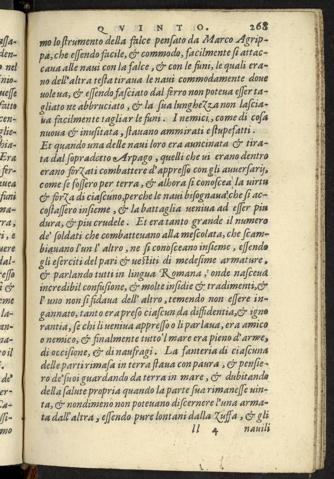 QVINTO. 268
mo lo strumento della falce pensato da Marco Agrip-
pa, che essendo facile, & commodo, facilmente si attac-
caua alle naui con la falce, & con le funi, le quali era-
no dell'altra testa tiraua le naui commodamente doue
uoleua, & essendo fasciato dal ferro non poteua esser ta-
gliato ne abbruciato, & la sua lunghezza non lascia-
ua facilmente tagliar le funi. I nemici, come di cosa
nuoua & inusitata, stauano ammirati e stupefatti.
Et quando una delle naui loro era auncinata & tira-
ta dal sopradetto Arpago, quelli che ui erano dentro
erano forzati combattere d'appresso con gli auuersarij,
come se fossero per terra, & alhora si conoscea la uirtù
& forza di ciascuno, perche le naui bisognaua che si ac-
costassero insieme, & la battaglia neniua ad esser piu
dura, & piu crudele. Et era tanto grande il numero
de' soldati che combatteuano alla mescolata, che scam-
biauano l'un l'altro, ne si conosceano insieme, essendo
gli eserciti del pari & uestiti di medesime armature,
& parlando tutti in lingua Romana, onde nasceua
incredibil confusione, & molte insidie & tradimenti, &
l'uno non si fidaua dell'altro, temendo non essere in-
gannato, tanto era preso ciascun da diffidentia, & igno
rantia, se chi li ueniua appresso o li parlaua, era amico
o nemico, & finalmente tutto l mare era pieno d'arme,
di occisione, & di naufragi. La fanteria di ciascuna
delle parti rimasa in terra staua con paura, & pensie-
ro de'suoi guardando da terra in mare, & dubitando
della salute propria quando la parte sua rimanesse uin-
ta, & nondimeno non poteuano discernere l'una arma-
ta dall'altra, essendo pure lontani dalla zuffa, & gli
ll 4 nauili